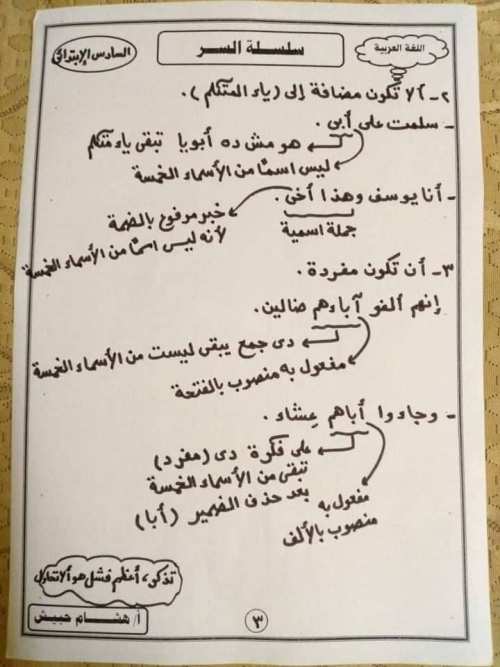 اللغة العربية
سلسلة السر
السادس الإبتدائي
٢- ألا تكون مضافة إلى (ياء المتكلم).
- سلمت على أبى.
هو مش ده أبويا تبقى ياء متكلم
ليس اسمًا من الأسماء الخمسة
- أنا يوسف وهذا أخى.
خبر مرفوع بالضمة
جملة اسمية
لأنه ليس اسمًا من الأسماء الخمسة
٣- أن تكون مفردة.
إنهم ألفو آباءهم ضالين.
دى جمع يبقى ليست من الأسماء الخمسة
مفعول به منصوب بالفتحة
- وجاءوا أباهم عِشاء.
على فكرة دى (مفرد)
تبقى من الأسماء الخمسة
بعد حذف الضمير (أبا)
مفعول به
منصوب بالألف
تذكر، أعظم فشل هو ألا تحاول
أ/ هشام حبيش
٣